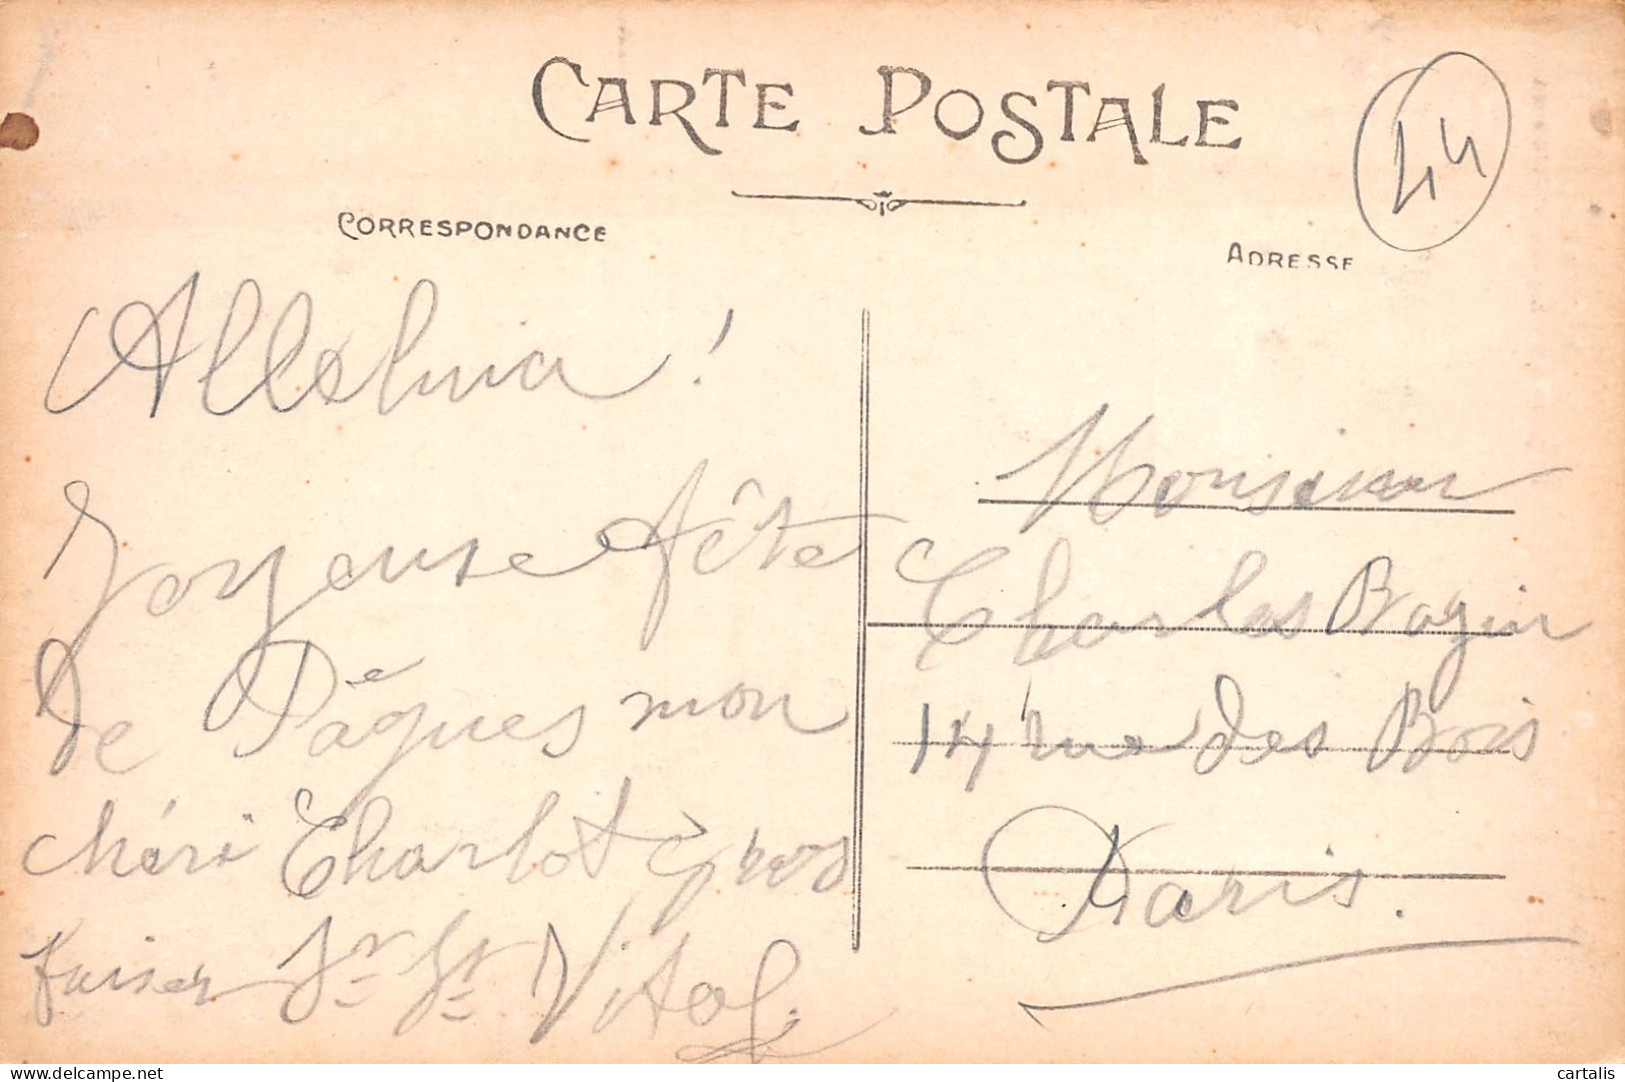 CARTE POSTALE
44
CORRESPONDANCE
ADRESSE
Alleluia !
Joyeuse fête
de Pâques mon
chéri Charlot gros
Sr St Vital.
Monsieur
Charles
14 rue des Bois
Paris.
© delcampe.net
cartalis